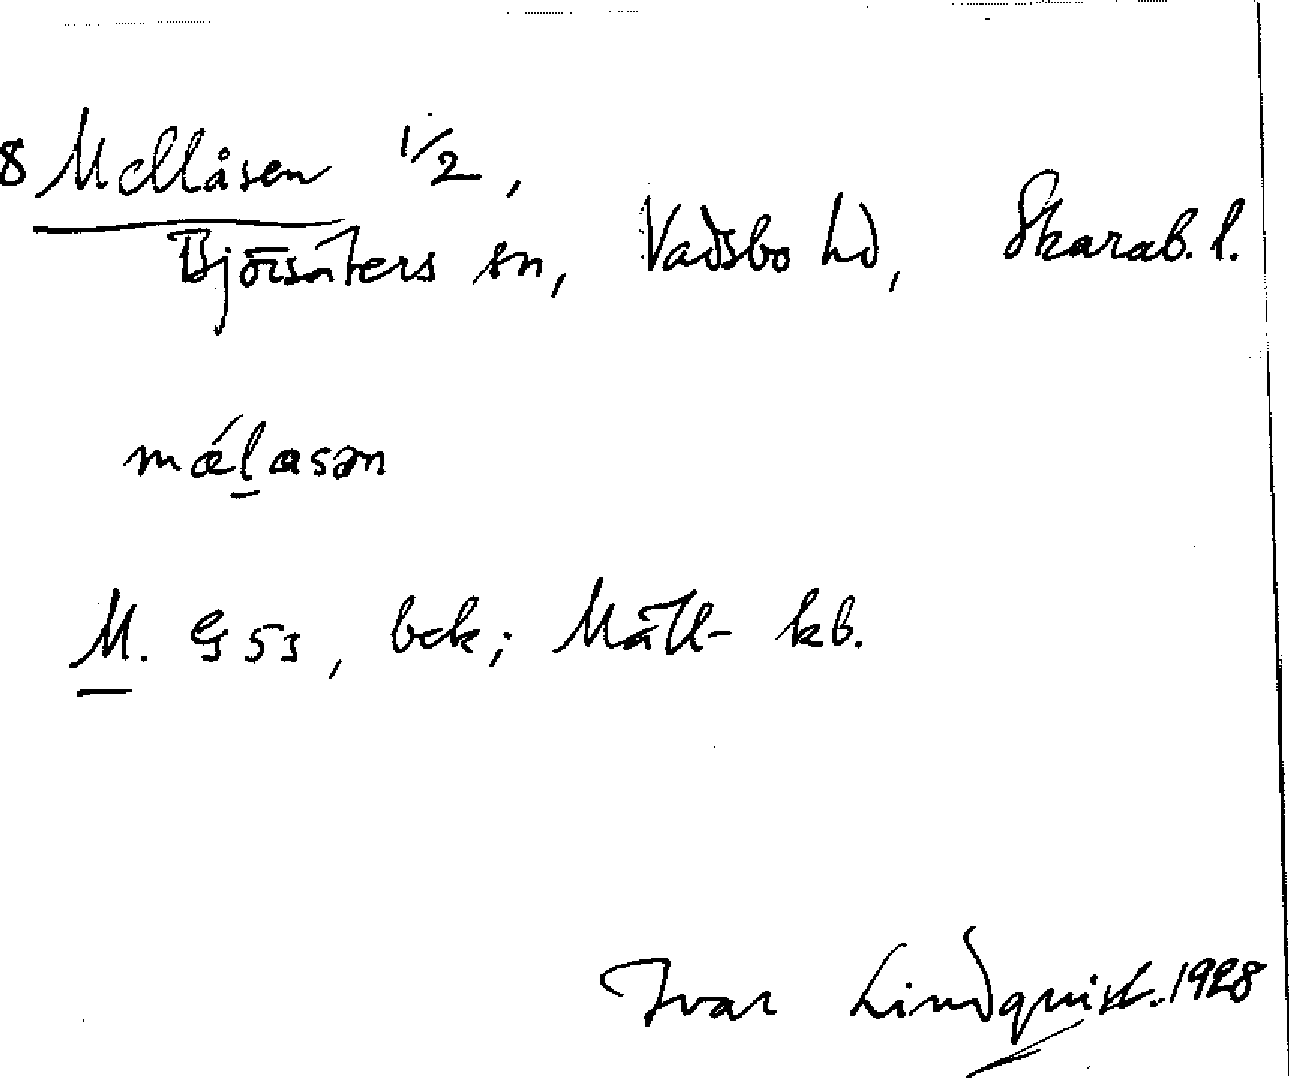 8 Mellåsen 1/2,
Björsäters sn, Vadsbo hd, Skarab. l.
mǽlasən
M. G 53, bek; Mäll- kb.
Ivar Lindquist. 1928